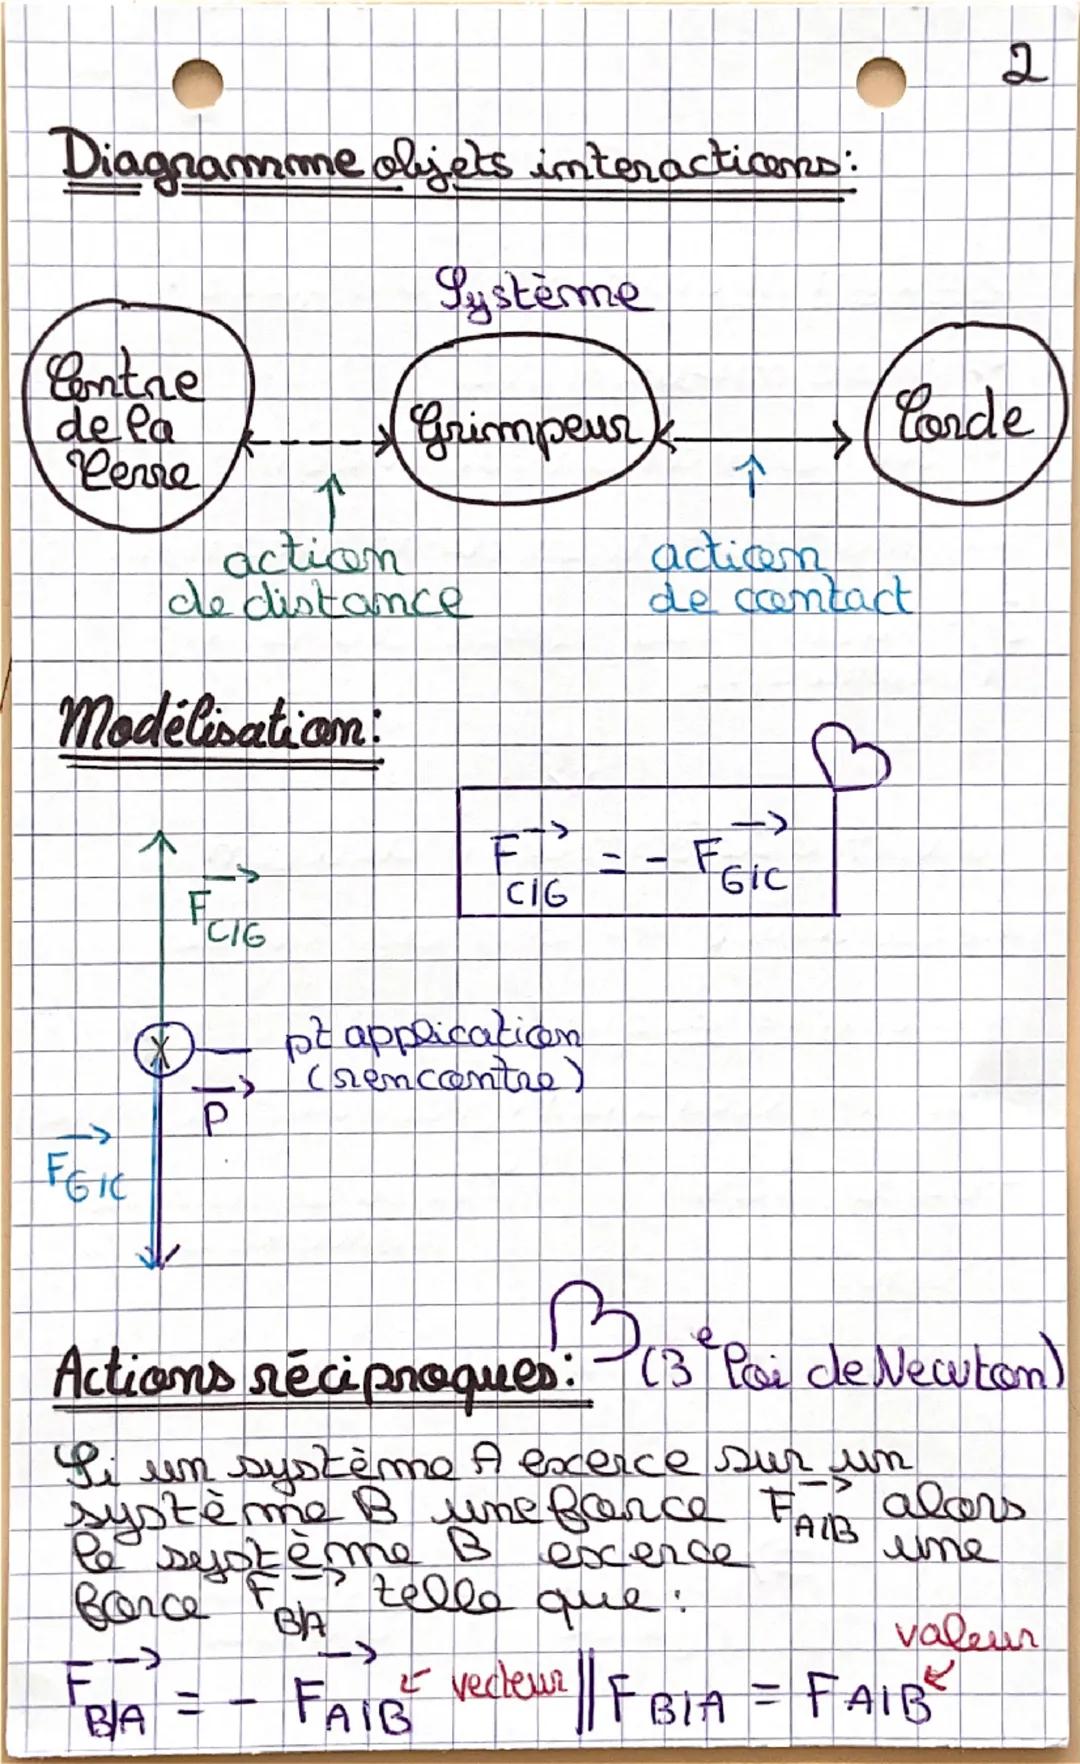 2
Diagramme objets interactions:
Système
Centre
de la
Terre
Grimpeur
Corde
action
de distance
action
de contact
Modélisation:
F⃗ C/G = - F⃗ G/C
F⃗ C/G
pt application
(rencontre)
P⃗
F⃗ G/C
Actions réciproques: (3e loi de Newton)
Si un système A exerce sur un
système B une force F⃗ A/B alors
le système B exerce une
force F⃗ B/A telle que:
valeur
F⃗ B/A = - F⃗ A/B ← vecteur || F B/A = F A/B